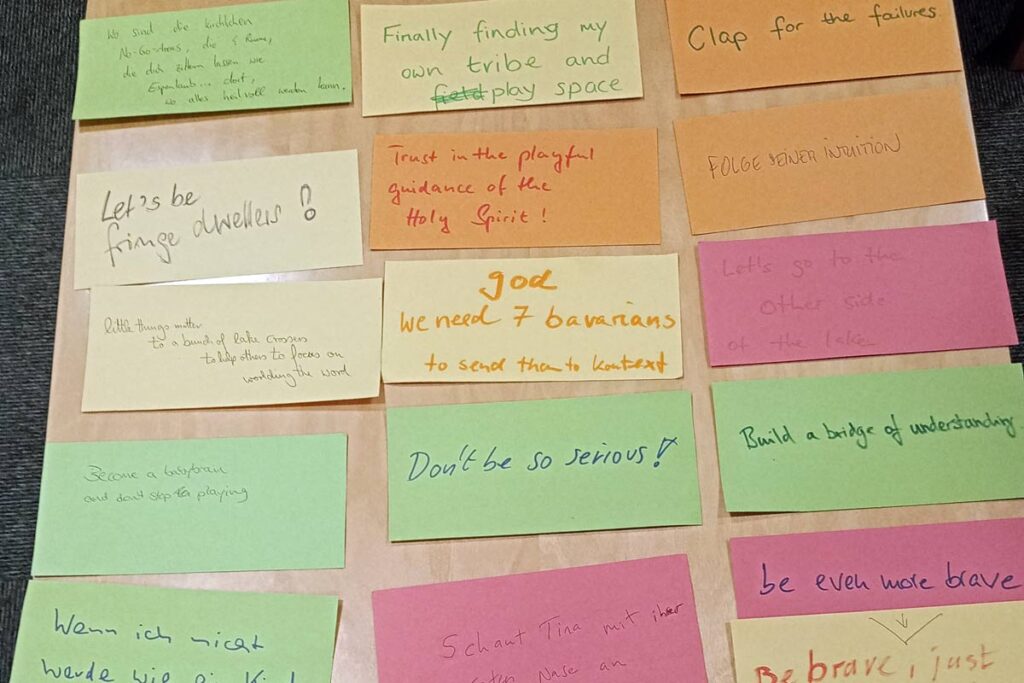 Wo sind die kirchlichen
No-Go-Areas, die Räume,
die dich zittern lassen wie
Espenlaub... dort,
wo alles heilvoll werden kann.
Finally finding my
own tribe and
field play space
Clap for the failures.
Let's be
fringe dwellers !
Trust in the playful
guidance of the
Holy Spirit !
FOLGE SEINER INTUITION
little things matter
to a bunch of lake crossers
to help others to focus on
worlding the word
god
we need 7 bavarians
to send them to Kontext
Let's go to the
other side
of the lake
Become a babybrain
and don't stop playing
Don't be so serious !
Build a bridge of understanding
Wenn ich nicht
werde wie ein
Schaut Tina mit ihrer
Nase an
be even more brave
Be brave, just